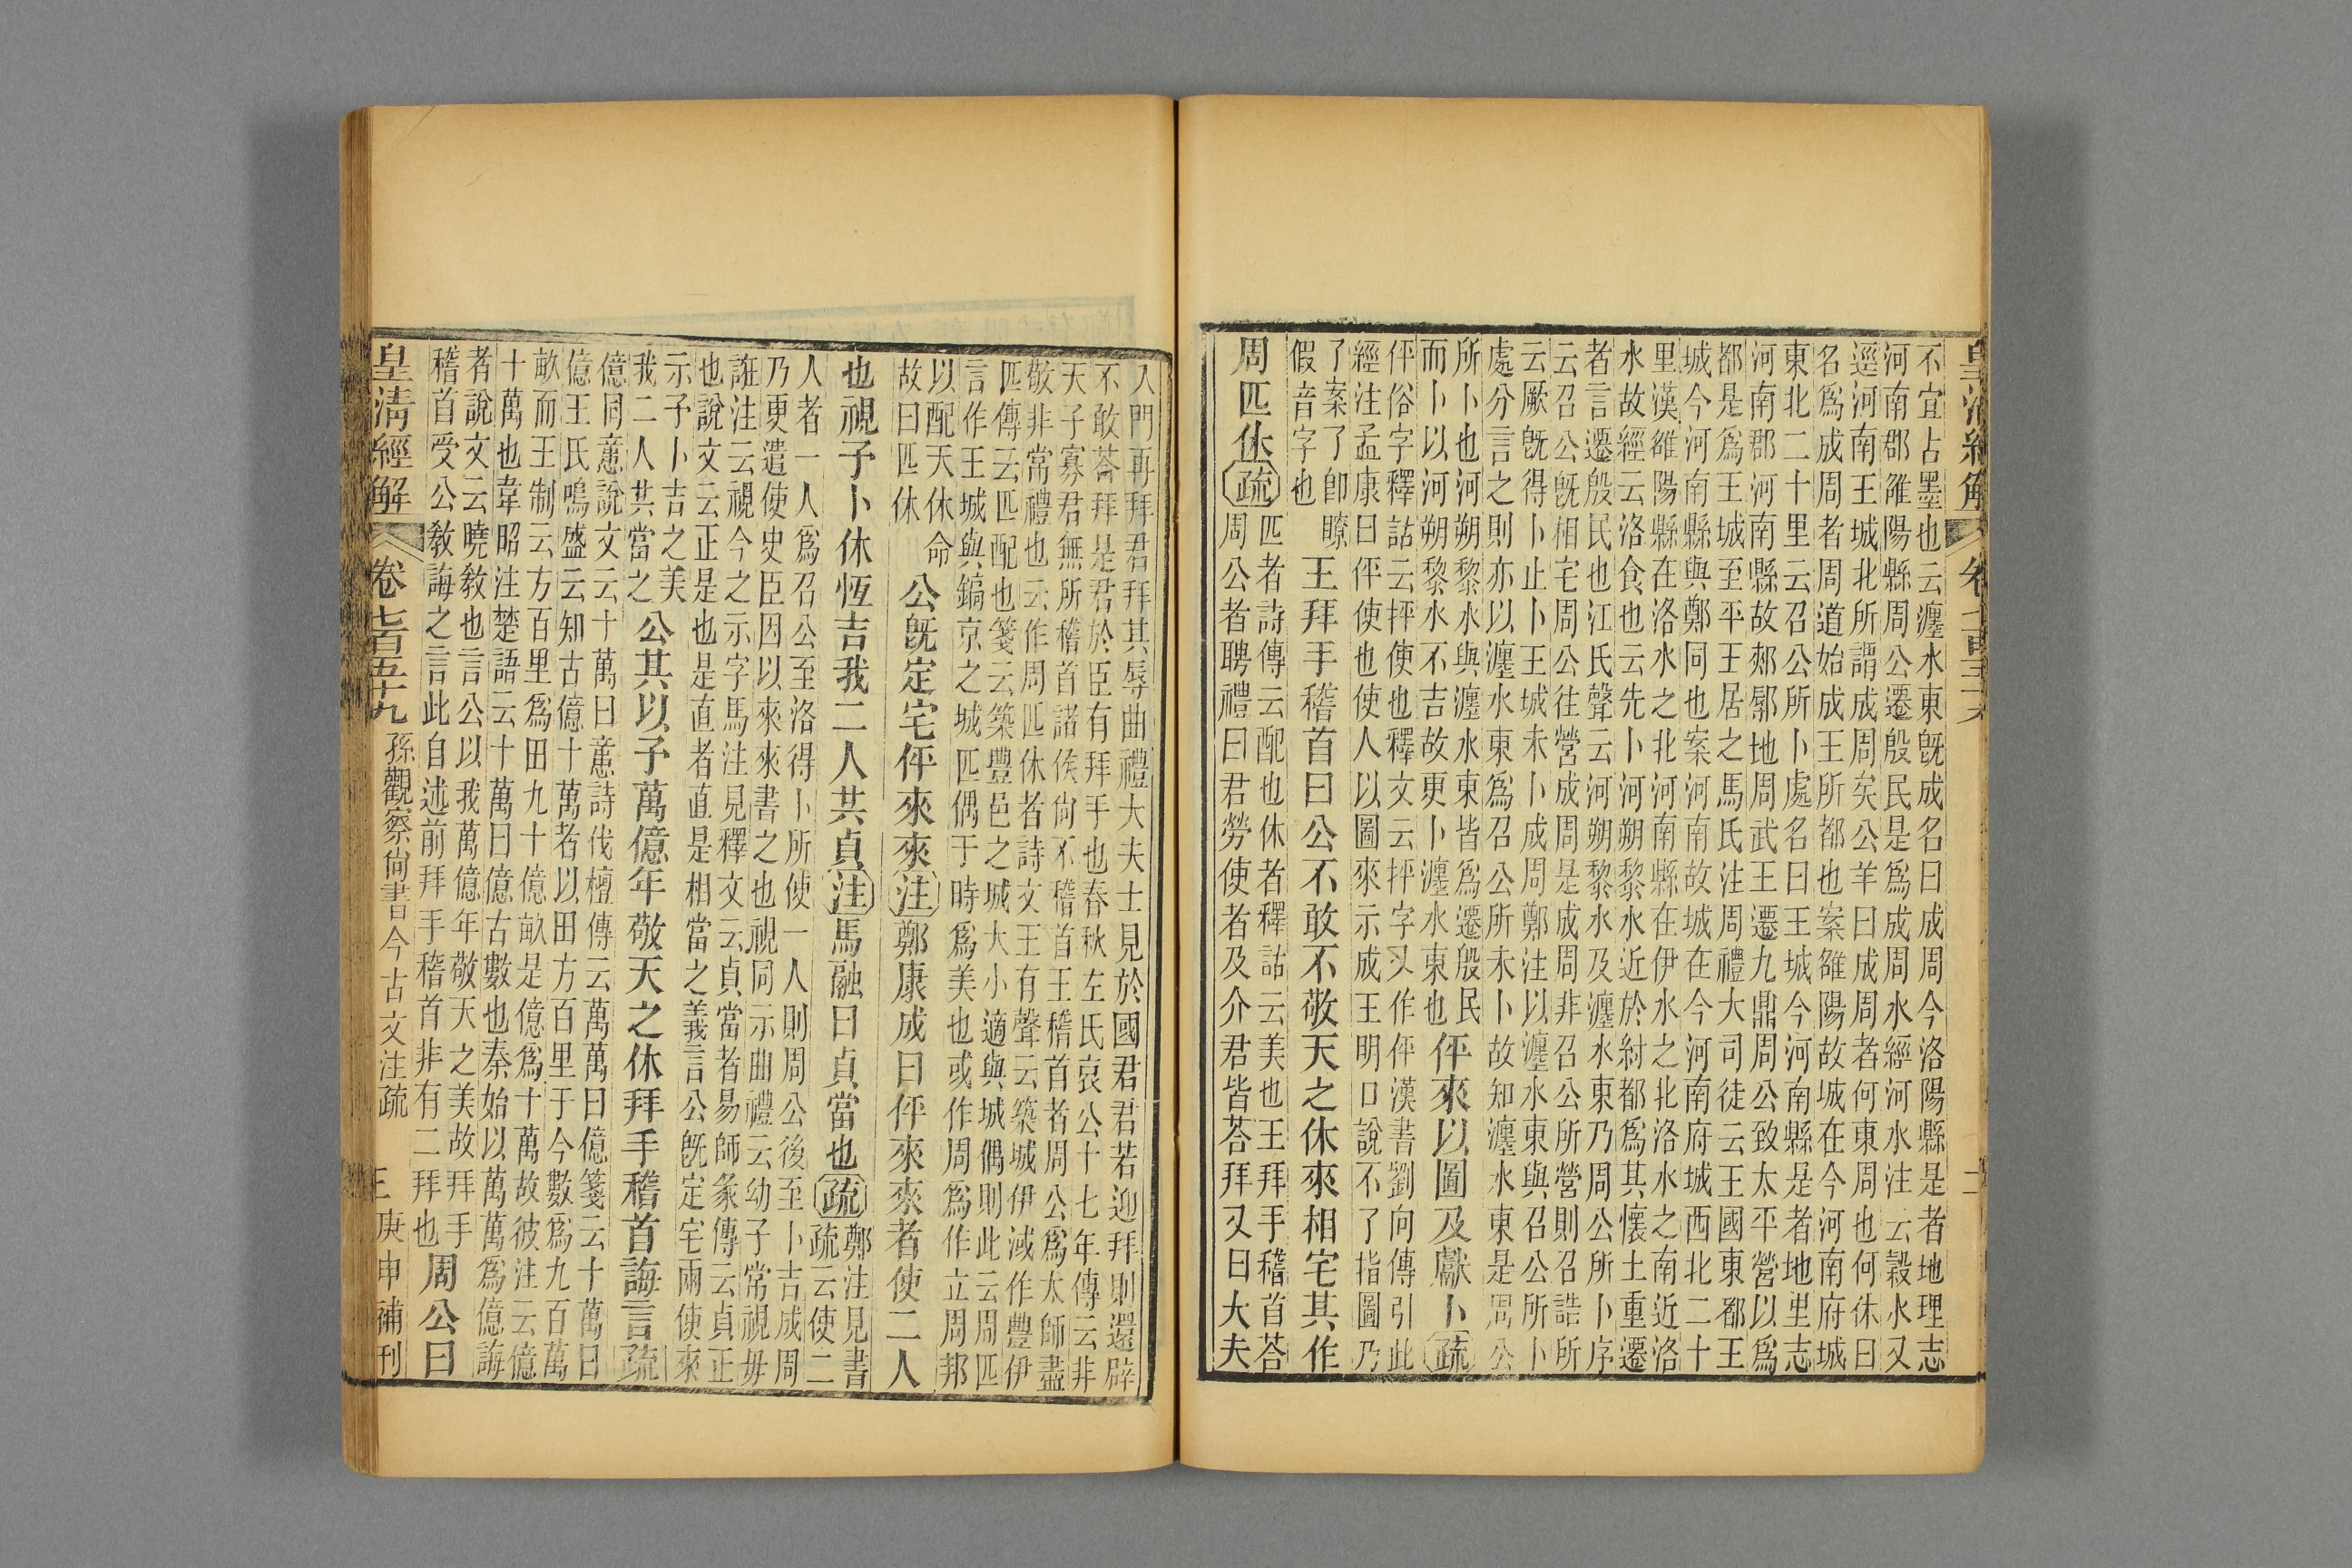 不宜占墨也云瀍水東旣成名曰成周今洛陽縣是者地理志
河南郡雒陽縣周公遷殷民是爲成周水經河水注云穀水又
逕河南王城北所謂成周矣公羊曰成周者何東周也何休曰
名爲成周者周道始成王所都也案雒陽故城在今河南府城
東北二十里云召公所卜處名曰王城今河南縣是者地里志
河南郡河南縣故郟鄏地周武王遷九鼎周公致太平營以爲
都是爲王城至平王居之馬氏注周禮大司徒云王國東都王
城今河南縣與鄭同也案河南故城在今河南府城西北二十
里漢雒陽縣在洛水之北河南縣在伊水之北洛水之南近洛
水故經云洛食也云先卜河朔黎水近於紂都爲其懷土重遷
者言遷殷民也江氏聲云河朔黎水及瀍水東乃周公所卜序
云召公旣相宅周公往營成周是成周非召公所營則召誥所
云厥旣得卜止卜王城未卜成周鄭注以瀍水東與召公所卜
處分言之則亦以瀍水東爲召公所未卜故知瀍水東是周公
所卜也河朔黎水與瀍水東皆爲遷殷民
而卜以河朔黎水不吉故更卜瀍水東也
伻來以圖及獻卜疏
伻俗字釋詁云抨使也釋文云抨字又作伻漢書劉向傳引此
經注孟康曰伻使也使人以圖來示成王明口說不了指圖乃
了案了卽瞭
假音字也
王拜手稽首曰公不敢不敬天之休來相宅其作
周匹休疏
匹者詩傳云配也休者釋詁云美也王拜手稽首荅
周公者聘禮曰君勞使者及介君皆荅拜又曰大夫
入門再拜君拜其辱曲禮大夫士見於國君君若迎拜則還辟
不敢荅拜是君於臣有拜手也春秋左氏哀公十七年傳云非
天子寡君無所稽首諸侯尙不稽首王稽首者周公爲太師盡
敬非常禮也云作周匹休者詩文王有聲云築城伊淢作豐伊
匹傳云匹配也箋云築豐邑之城大小適與城偶則此云周匹
言作王城與鎬京之城匹偶于時爲美也或作周爲作立周邦
以配天休命
故曰匹休
公旣定宅伻來來注鄭康成曰伻來來者使二人
也視予卜休恆吉我二人共貞注馬融曰貞當也疏
鄭注見書
疏云使二
人者一人爲召公至洛得卜所使一人則周公後至卜吉成周
乃更遣使史臣因以來來書之也視同示曲禮云幼子常視毋
誑注云視今之示字馬注見釋文云貞當者易師彖傳云貞正
也說文云正是也是直者直是相當之義言公旣定宅兩使來
示予卜吉之美
我二人共當之
公其以予萬億年敬天之休拜手稽首誨言疏
億同意說文云十萬曰意詩伐檀傳云萬萬曰億箋云十萬曰
億王氏鳴盛云知古億十萬者以田方百里于今數爲九百萬
畝而王制云方百里爲田九十億畝是億爲十萬故彼注云億
十萬也韋昭注楚語云十萬曰億古數也秦始以萬萬爲億誨
者說文云曉敎也言公以我萬億年敬天之美故拜手
稽首受公敎誨之言此自述前拜手稽首非有二拜也
周公曰
皇清經解 卷七百五十九 孫觀察尙書今古文注疏 三 庚申補刊